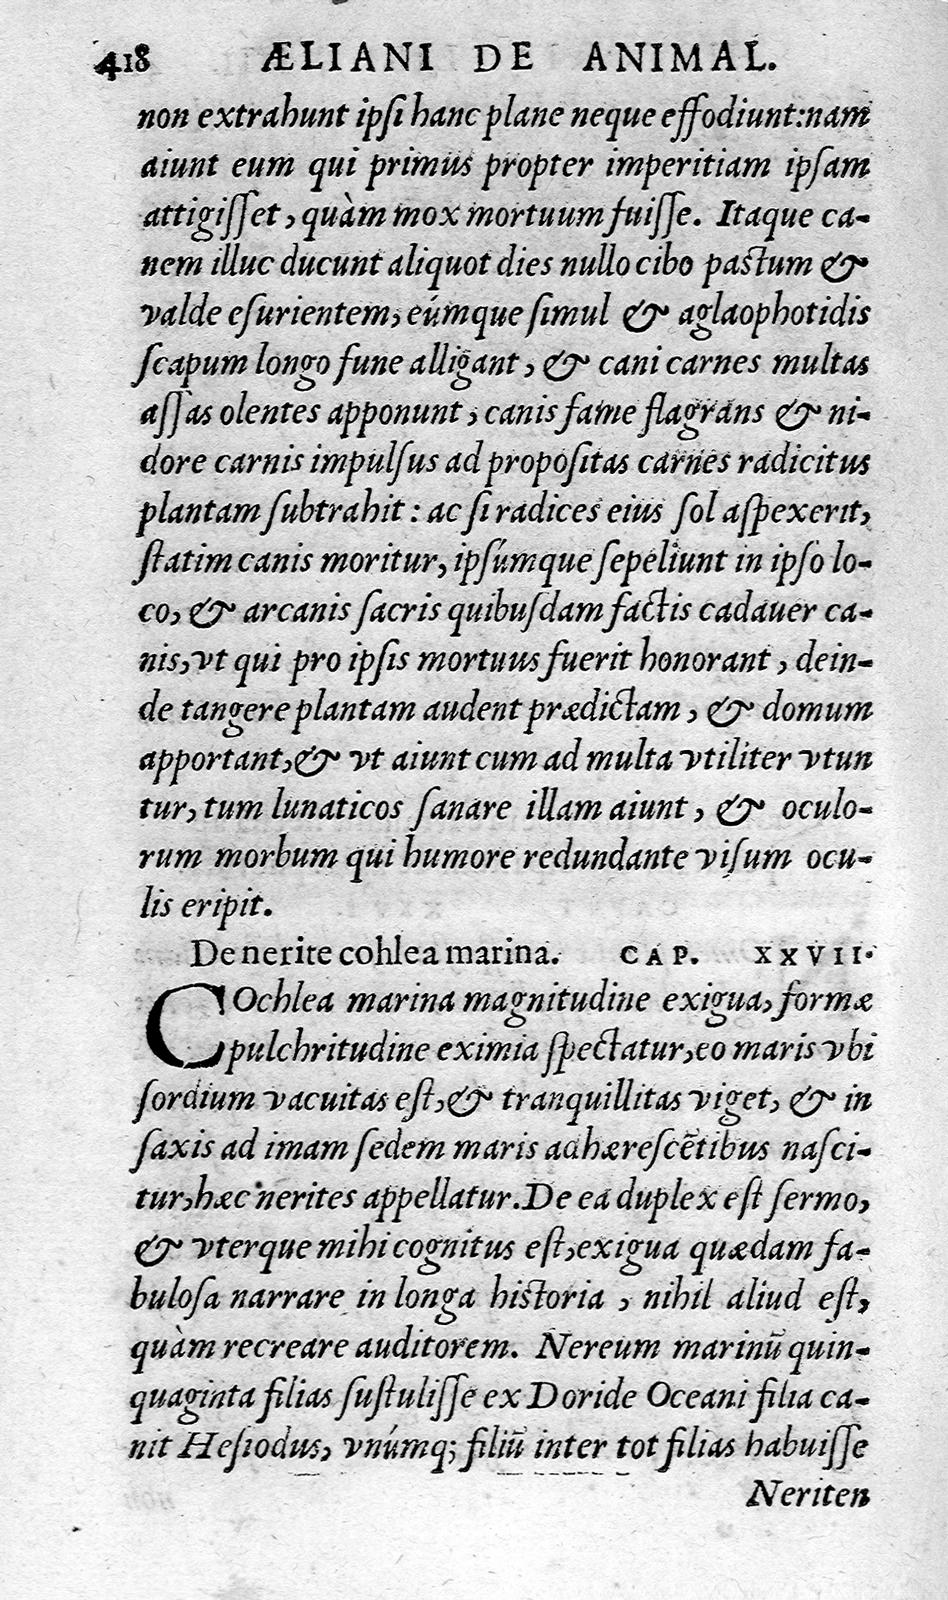 418 ÆLIANI DE ANIMAL.
non extrahunt ipſi hanc plane neque effodiunt:nam
aiunt eum qui primus propter imperitiam ipſam
attigiſſet, quàm mox mortuum fuiſſe. Itaque ca-
nem illuc ducunt aliquot dies nullo cibo pastum &
valde eſurientem, eúmque ſimul & aglaophotidis
ſcapum longo fune alligant, & cani carnes multas
aſſas olentes apponunt, canis fame flagrans & ni-
dore carnis impulſus ad propoſitas carnes radicitus
plantam ſubtrahit : ac ſi radices eius ſol aſpexerit,
ſtatim canis moritur, ipſúmque ſepeliunt in ipſo lo-
co, & arcanis ſacris quibuſdam factis cadauer ca-
nis, vt qui pro ipſis mortuus fuerit honorant, dein-
de tangere plantam audent prædictam, & domum
apportant, & vt aiunt cum ad multa vtiliter vtun
tur, tum lunaticos ſanare illam aiunt, & oculo-
rum morbum qui humore redundante viſum ocu-
lis eripit.
De nerite cohlea marina. CAP. XXVII.
COchlea marina magnitudine exigua, formæ
pulchritudine eximia ſpectatur, eo maris vbi
ſordium vacuitas eſt, & tranquillitas viget, & in
ſaxis ad imam ſedem maris adhæreſcẽtibus naſci-
tur, hæc nerites appellatur. De ea duplex eſt ſermo,
& vterque mihi cognitus eſt, exigua quædam fa-
buloſa narrare in longa historia, nihil aliud eſt,
quàm recreare auditorem. Nereum marinũ quin-
quaginta filias ſuſtuliſſe ex Doride Oceani filia ca-
nit Heſiodus, vnúmq; filiũ inter tot filias habuiſſe
Neriten